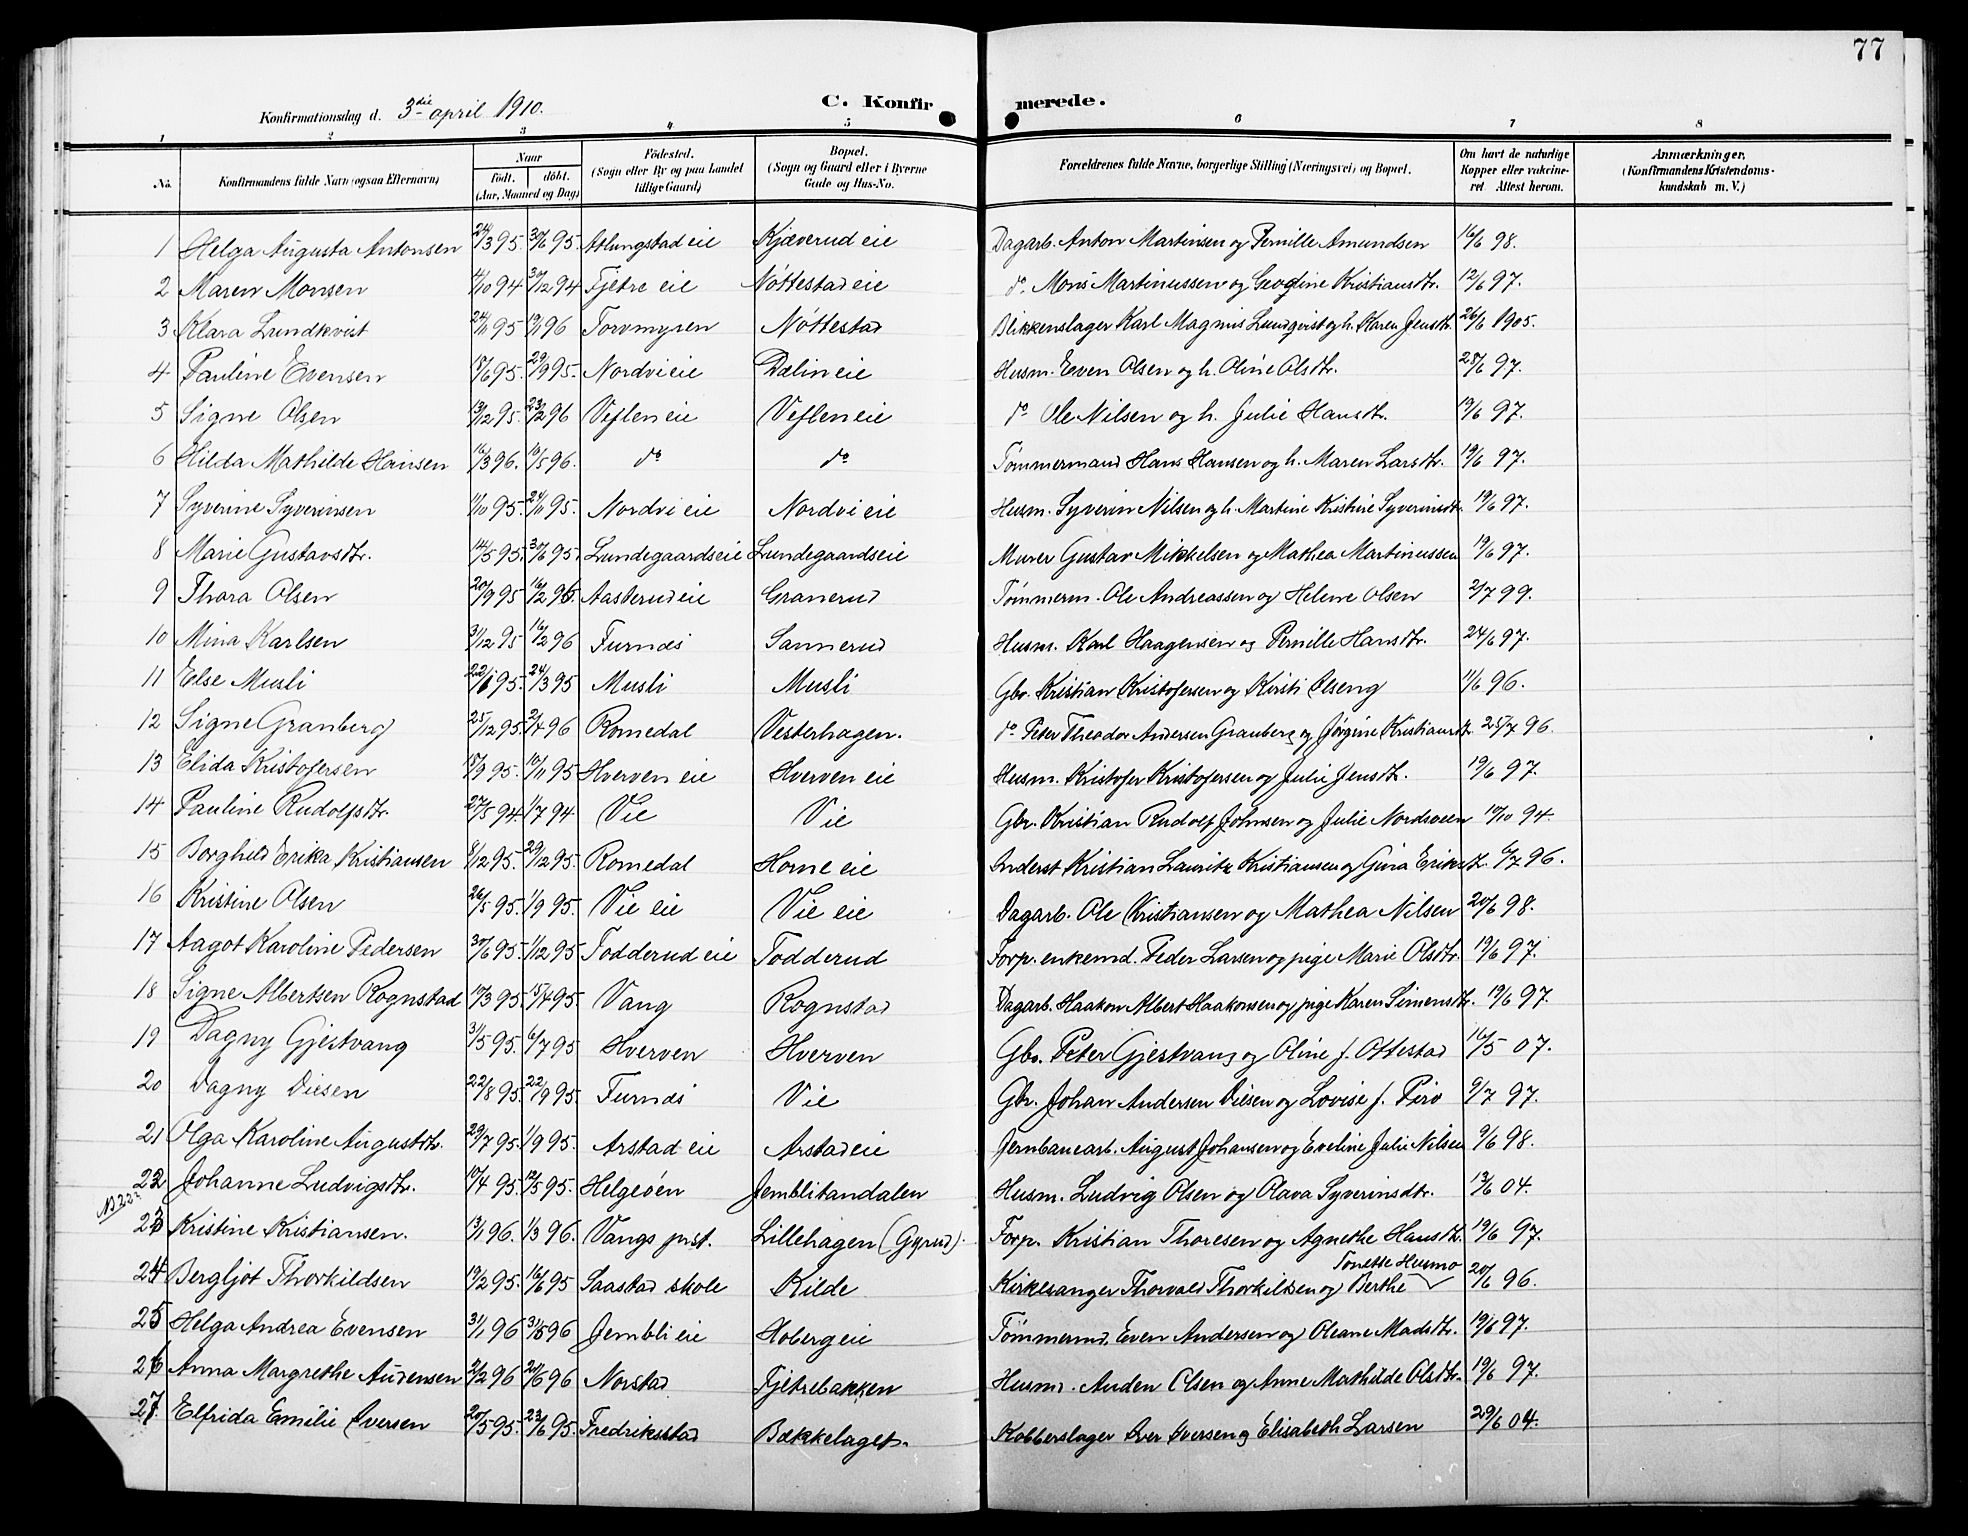 77
Konfirmationsdag d. 3die april 1910.
C. Konfirmerede.
1 2 3 4 5 6 7 8
No. Konfirmandens fulde Navn (ogsaa Efternavn) Naar født. døbt. (Aar, Maaned og Dag) Fødested. (Sogn eller By og paa Landet tillige Gaard) Bopæl. (Sogn og Gaard eller i Byerne Gade og Hus-No. Forældrenes fulde Navne, borgerlige Stilling (Næringsvei) og Bopæl. Om havt de naturlige Kopper eller vakcineret. Attest herom. Anmærkninger. (Konfirmandens Kristendomskundskab m. V.)
1 Helga Augusta Antonsen 24/3 95. 30/6 95. Atlungstad eie Kjæverud eie Dagarb. Anton Martinsen og Pernille Amundsen 16/6 98.
2 Maren Monsen 4/10 94 30/12 94 Fjetre eie Nøttestad eie do. Mons Martinussen og Georgine Kristiansdtr. 12/6 97.
3 Klara Lundkvist 24/11 95 19/1 96 Torvmyren Nøttestad Blikkenslager Karl Magnus Lundqvist og h. Karen Jensdtr. 26/6 1905.
4 Pauline Evensen 15/6 95. 29/9 95. Nordvi eie Dælin eie Husm. Even Olsen og h. Oline Olsdtr. 28/6 97.
5 Signe Olsen 13/12 95. 23/2 96 Veflen eie Veflen eie do Ole Nilsen og h. Julie Hansdtr. 19/6 97.
6 Hilda Mathilde Hansen 16/3 96. 10/5 96. do do Tømmermand Hans Hansen og h. Maren Larsdtr. 19/6 97.
7 Syverine Syverinsen 11/10 95. 24/11 95. Nordvi eie Nordvi eie Husm. Syverin Nilsen og h. Martine Kristine Syverinsdtr. 19/6 97.
8 Marie Gustavsdtr. 14/5 95. 30/6 95. Lundegaardseie Lundegaardseie Murer Gustav Mikkelsen og Mathea Martinussen 19/6 97.
9 Thora Olsen 20/9 95 Aasterud eie Granerud Tømmerm. Ole Andreassen og Helene Olsen 2/7 99.
10 Mina Karlsen 31/12 95 16/2 96 Furnæs Sannerud Husm. Karl Haagensen og Pernille Hansdtr. 24/6 97.
11 Else Musli 22/1 95. 24/3 95 Musli Musli Gbr. Kristian Kristofersen og Kirsti Olseng 11/6 96.
12 Signe Granberg 25/12 95. 2/4 96 Romedal Vesterhagen. do Peter Theodor Andersen Granberg og Jørgine Kristiansdtr. 25/7 96.
13 Elida Kristofersen 15/9 95. 10/11 95 Hverven eie Hverven eie Husm. Kristofer Kristofersen og Julie Jensdtr. 19/6 97.
14 Pauline Rudolfsdtr. 27/5 94. 1/7 94 Vie Vie Gbr. Kristian Rudolf Johnsen og Julie Nordsveen 10/10 94.
15 Borghild Erika Kristiansen 8/12 95. 29/12 95. Romedal Horne eie Inderst Kristian Lauritz Kristiansen og Gina Eriksdtr. 6/7 96.
16 Kristine Olsen 26/5 95. 1/9 95. Vie eie Vie eie Dagarb. Ole Kristiansen og Mathea Nilsen 20/6 98.
17 Aagot Karoline Pedersen 30/6 95. 1/12 95 Fodderud eie Fodderud Forp. enkemd. Peder Larsen og pige Marie Olsdtr. 19/6 97.
18 Signe Albertsen Rognstad 10/3 95. 15/4 95. Vang Rognstad Dagarb. Haakon Albert Haakonsen og pige Karen Simensdtr. 19/6 97.
19 Dagny Gjestvang 31/5 95. 6/7 95 Hverven Hverven Gbr. Peter Gjestvang og Oline f. Ottestad 16/5 07.
20 Dagny Diesen 22/8 95. 22/9 95. Furnæs Vie Gbr. Johan Andersen Diesen og Lovise f. Piro 9/7 97.
21 Olga Karoline Augustdtr. 29/7 95. 1/9 95. Arstad eie Arstad eie Jernbanearb. August Johansen og Eveline Julie Nilsen 9/6 98.
22 Johanne Ludvigsdtr. 10/4 95. 12/5 95. Helgeøen Jemblitandalen Husm. Ludvig Olsen og Olava Syverinsdtr. 13/6 04.
23 Kristine Kristiansen. 13/1 96. 1/3 96. Vangs prst. Lillehagen (Gyrud). Forp. Kristian Thoresen og Agnethe Hansdtr. 19/6 97.
24 Bergljot Thorkildsen 19/2 95. 16/6 95 Saastad skole Kilde Kirkesanger Thorvald Thorkildsen og Berthe Tonette Husmo 20/6 96.
25 Helga Andrea Evensen 31/1 96 31/5 96 Jembli eie Hoberg eie Tømmermd. Even Andersen og Oleane Madsdtr. 19/6 97.
26 Anna Margrethe Audensen 2/2 96 Norstad Fjetrebakken Husmd. Auden Olsen og Anne Mathilde Olsdtr. 19/6 97.
27. Elfrida Emilie Iversen 20/5 95. 23/6 95. Fredriksstad Bækkelaget. Kobberslager Iver Iversen og Elisabeth Larsen 29/6 04.